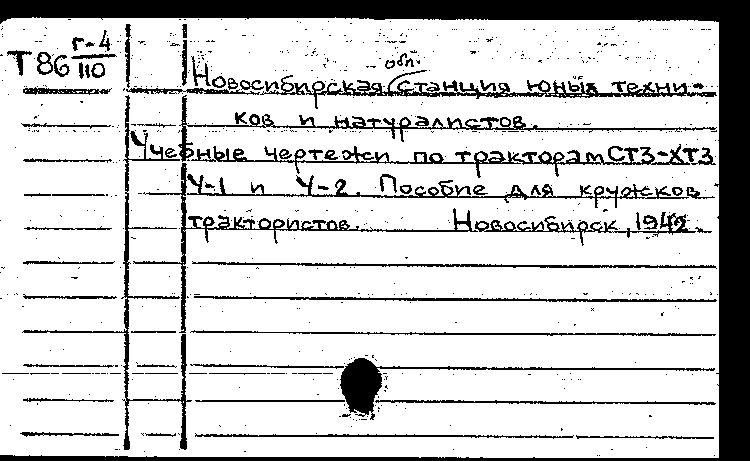 Т86 г-4
110
Новосибирская обл. станция юных техни-
ков и натуралистов.
Учебные чертежи по тракторам СТЗ-ХТЗ
У-1 и У-2. Пособие для кружков
трактористов. Новосибирск, 1942.